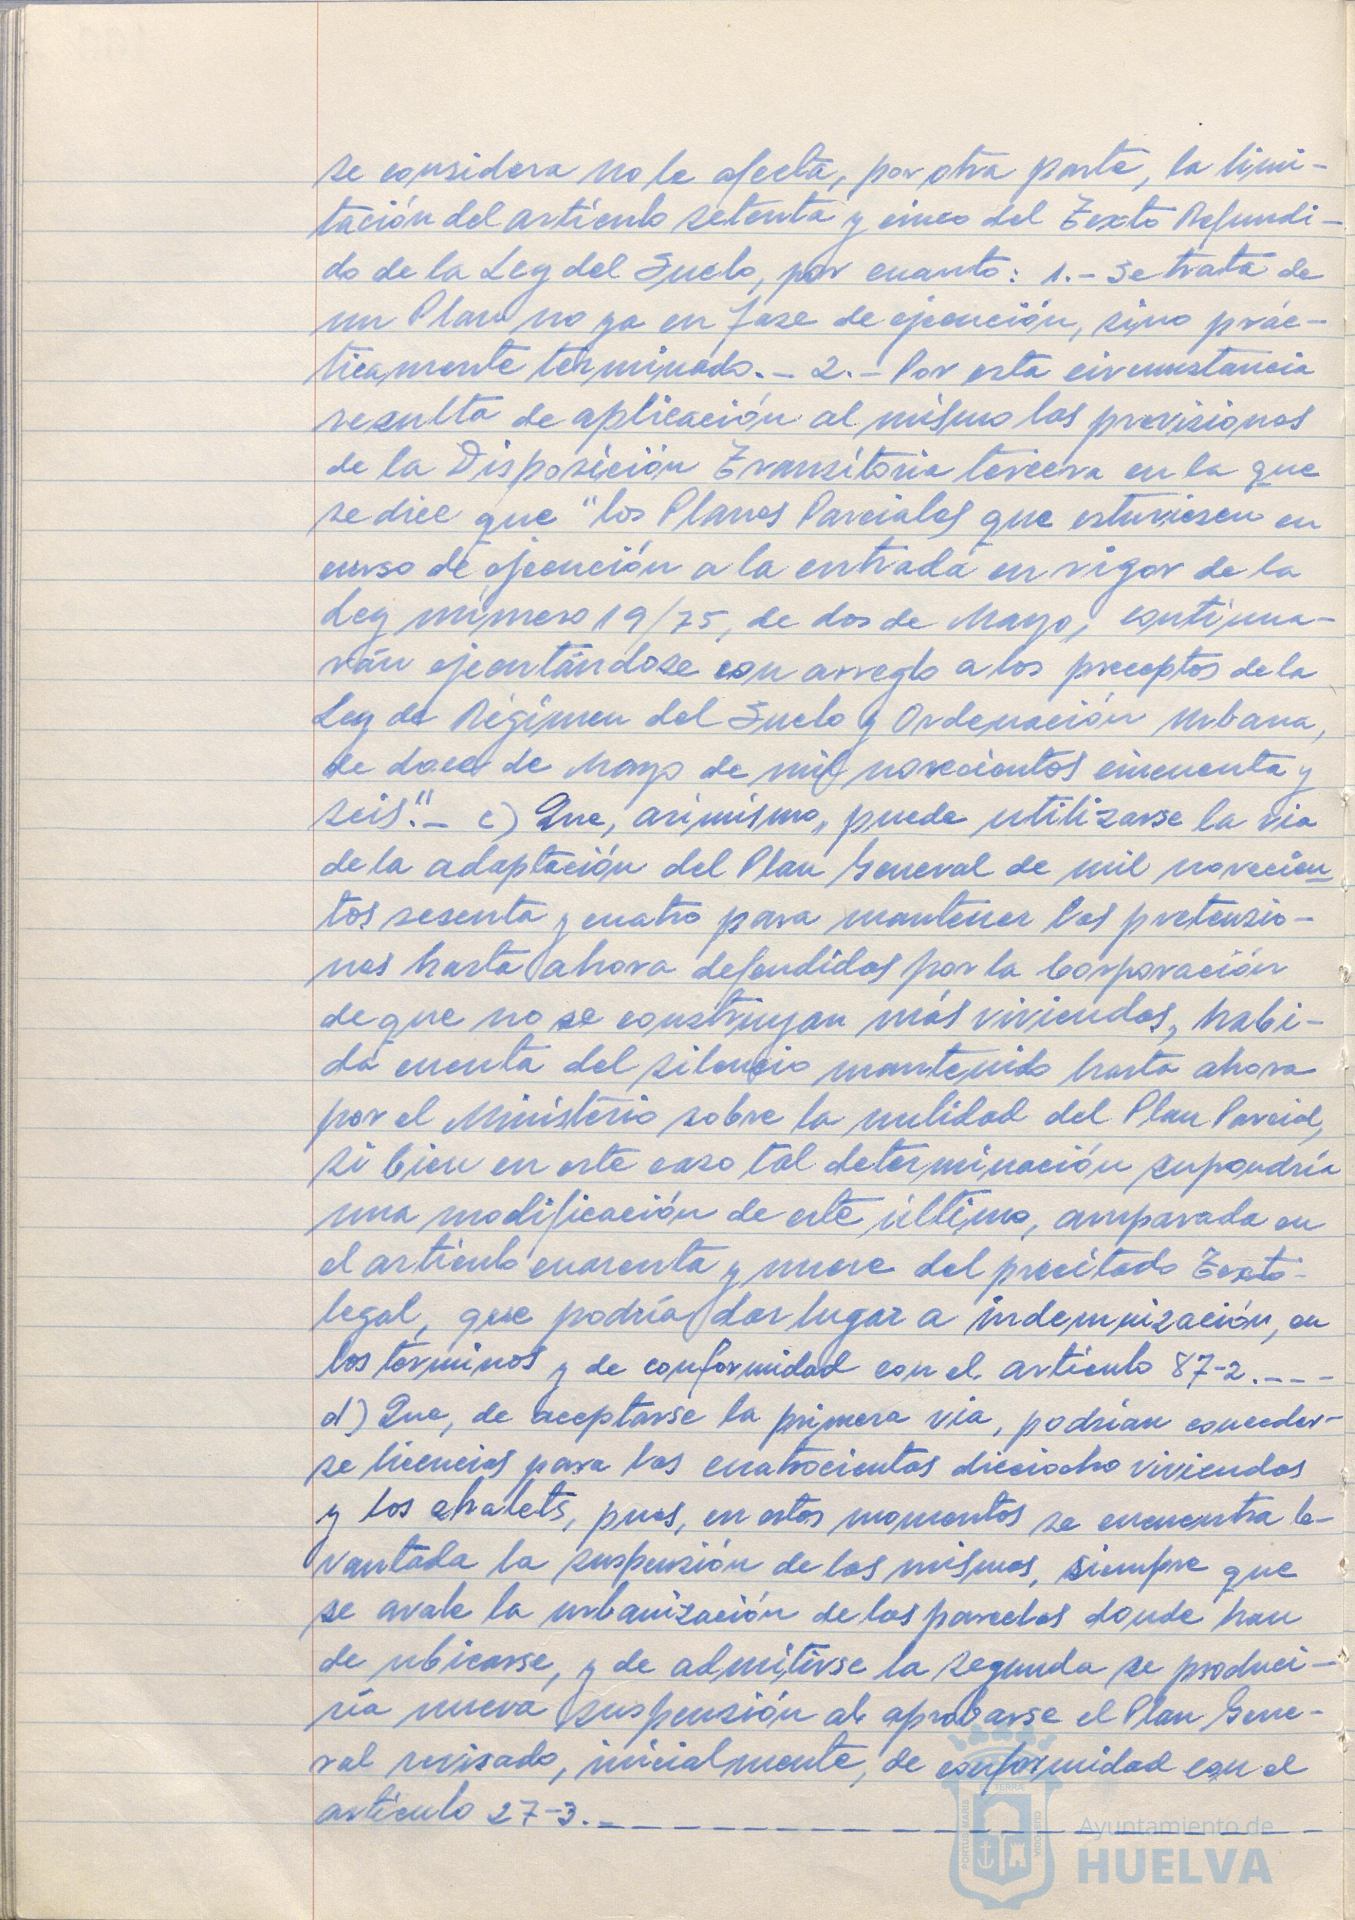 se considera no le afecta, por otra parte, la limi-
tación del artículo setenta y cinco del Texto Refundi-
do de la Ley del Suelo, por cuanto: 1.- Se trata de
un Plan no ya en fase de ejecución, sino prác-
ticamente terminado.- 2.- Por esta circunstancia
resulta de aplicación al mismo las previsiones
de la Disposición Transitoria tercera en la que
se dice que "los Planes Parciales que estuviesen en
curso de ejecución a la entrada en vigor de la
Ley número 19/75, de dos de Mayo, continua-
rán ejecutándose con arreglo a los preceptos de la
Ley de Régimen del Suelo y Ordenación Urbana,
de doce de Mayo de mil novecientos cincuenta y
seis".- c) Que, asimismo, puede utilizarse la via
de la adaptación del Plan General de mil novecien-
tos sesenta y cuatro para mantener las pretensio-
nes hasta ahora defendidas por la Corporación
de que no se construyan más viviendas, habi-
da cuenta del silencio mantenido hasta ahora
por el Ministerio sobre la nulidad del Plan Parcial,
si bien en este caso tal determinación supondría
una modificación de este último, amparada en
el artículo cuarenta y nueve del precitado Texto-
legal, que podría dar lugar a indemnización, en
los términos y de conformidad con el artículo 87-2.---
d) Que, de aceptarse la primera via, podrían conceder-
se licencias para las cuatrocientas dieciocho viviendas
y los chalets, pues, en estos momentos se encuentra le-
vantada la suspensión de las mismas, siempre que
se avale la urbanización de las parcelas donde han
de ubicarse, y de admitirse la segunda se produci-
ría nueva suspensión al aprobarse el Plan Gene-
ral revisado, inicialmente, de conformidad con el
artículo 27-3.-
PORTUS MARIS
TERRÆ
CUSTODIA
Ayuntamiento de
HUELVA